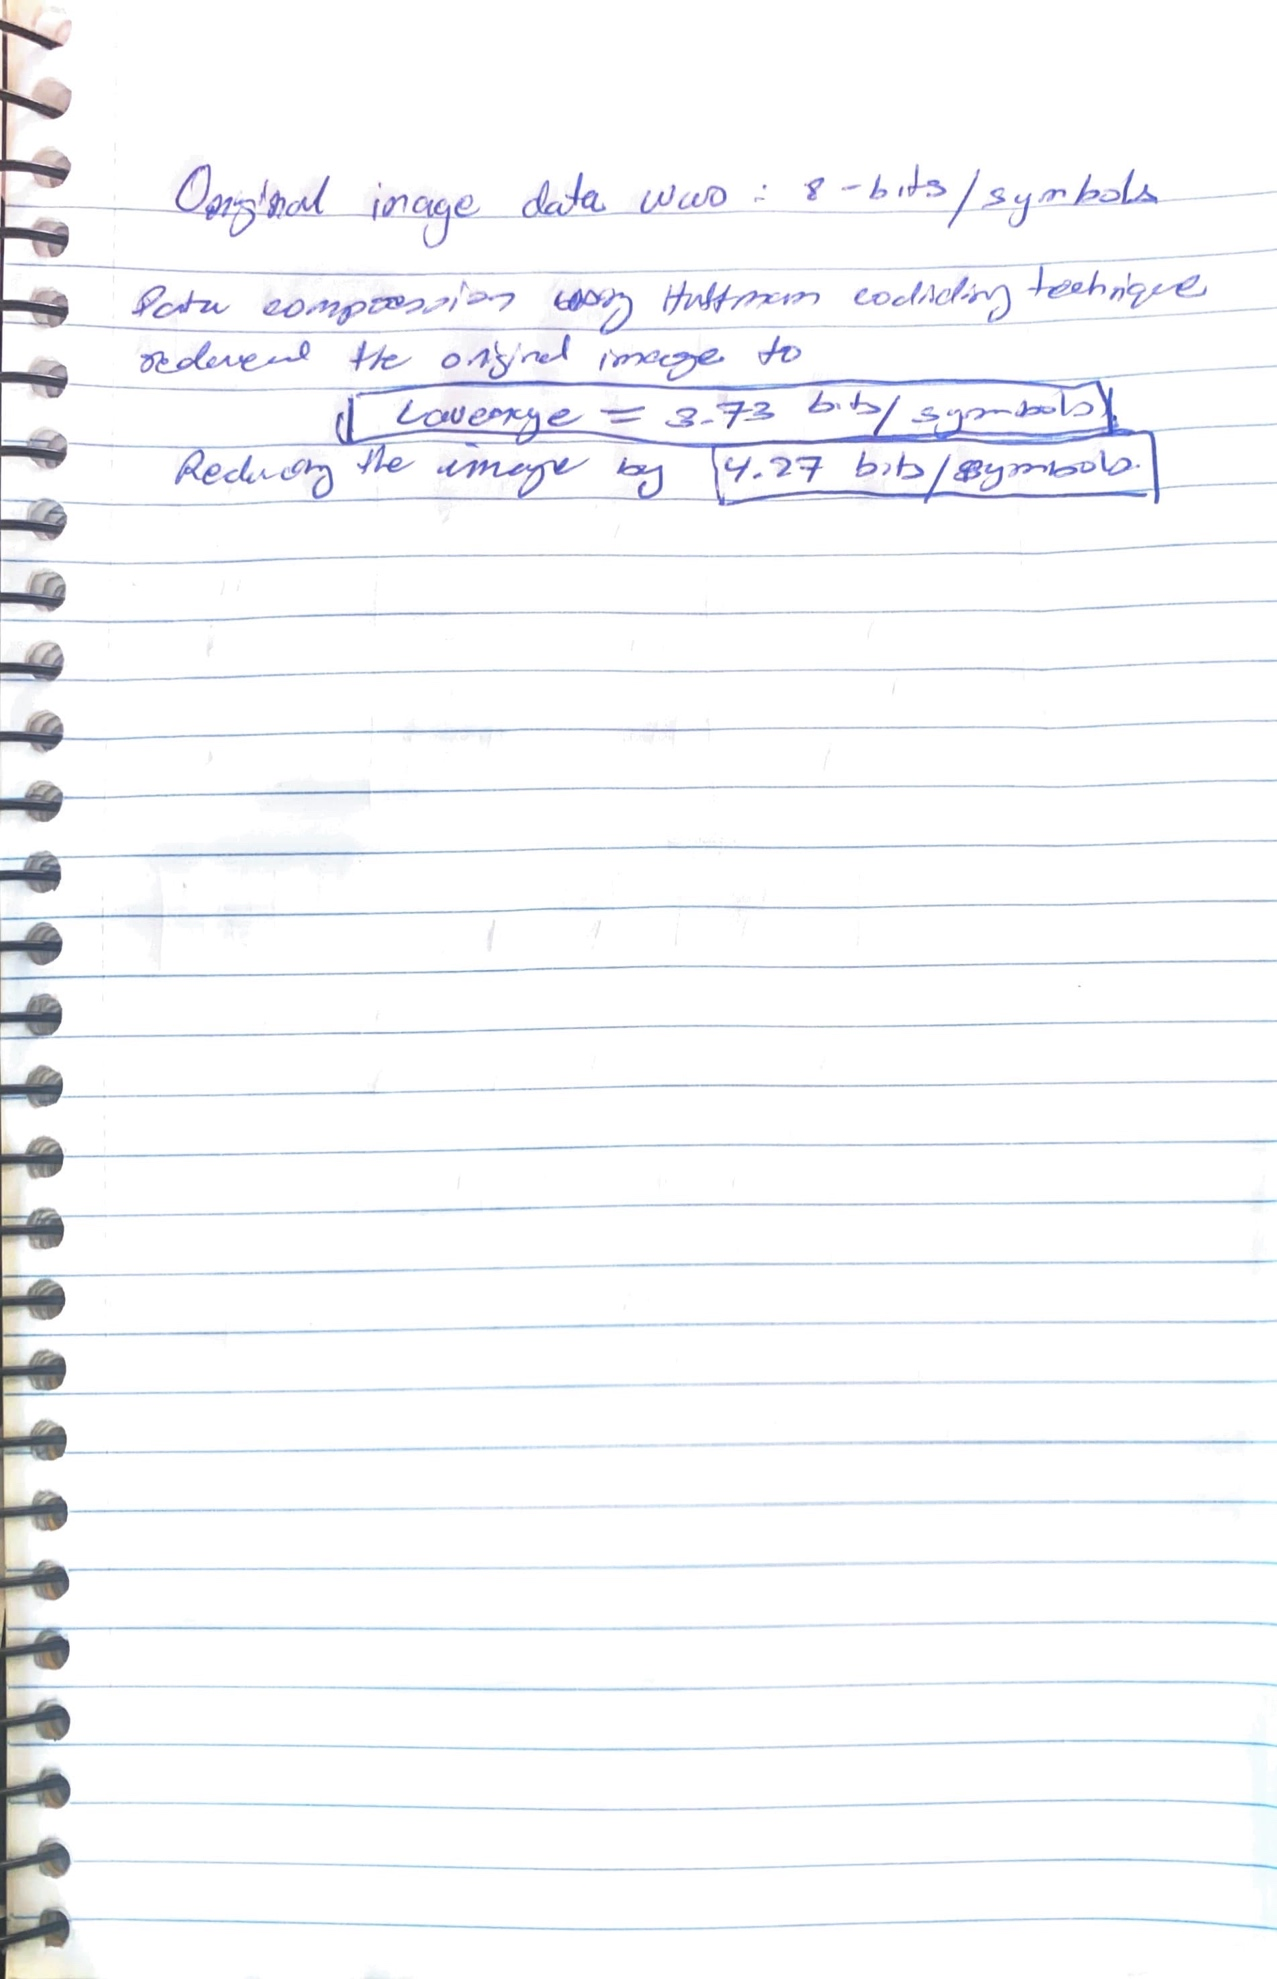 Original image data was : 8-bits/symbols
Data compression using Huffman codiding technique
reduced the original image to
Laverage = 3.73 bits/symbols
Reducing the image by 4.27 bits/symbols.